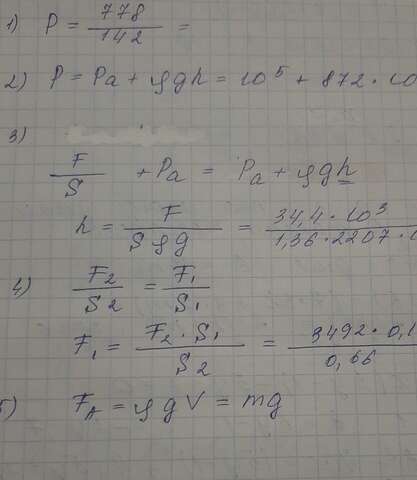 1) P = 778/142 =
2) P = Pa + ρgh = 10⁵ + 872·10
3)
F/S + Pa = Pa + ρgh
h = F/Sρg = 34,4·10³/1,36·2207·
4) F₂/S₂ = F₁/S₁
F₁ = F₂·S₁/S₂ = 3492·0,1/0,66
5) F_A = ρgV = mg